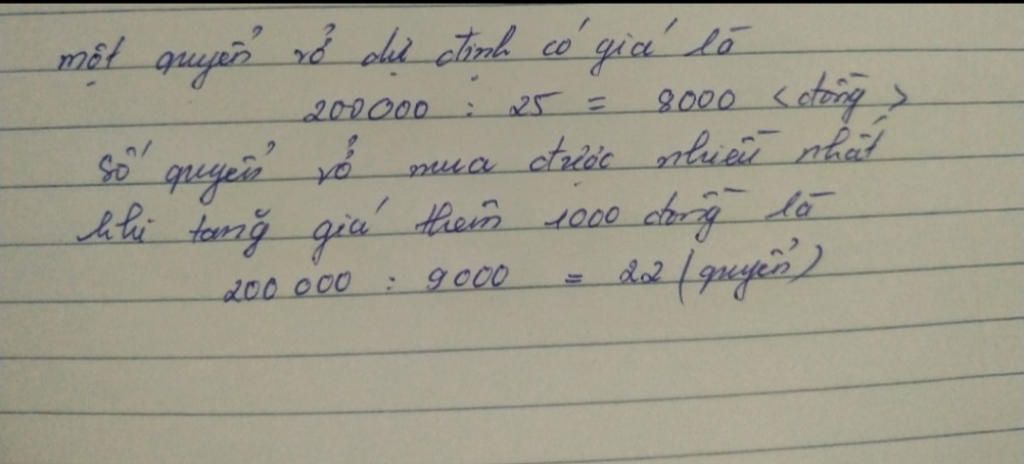 một quyển vở dự định có giá là
200000 : 25 = 8000 <đồng>
Số quyển vở mua được nhiều nhất
khi tăng giá thêm 1000 đồng là
200 000 : 9000 = 22 (quyển)